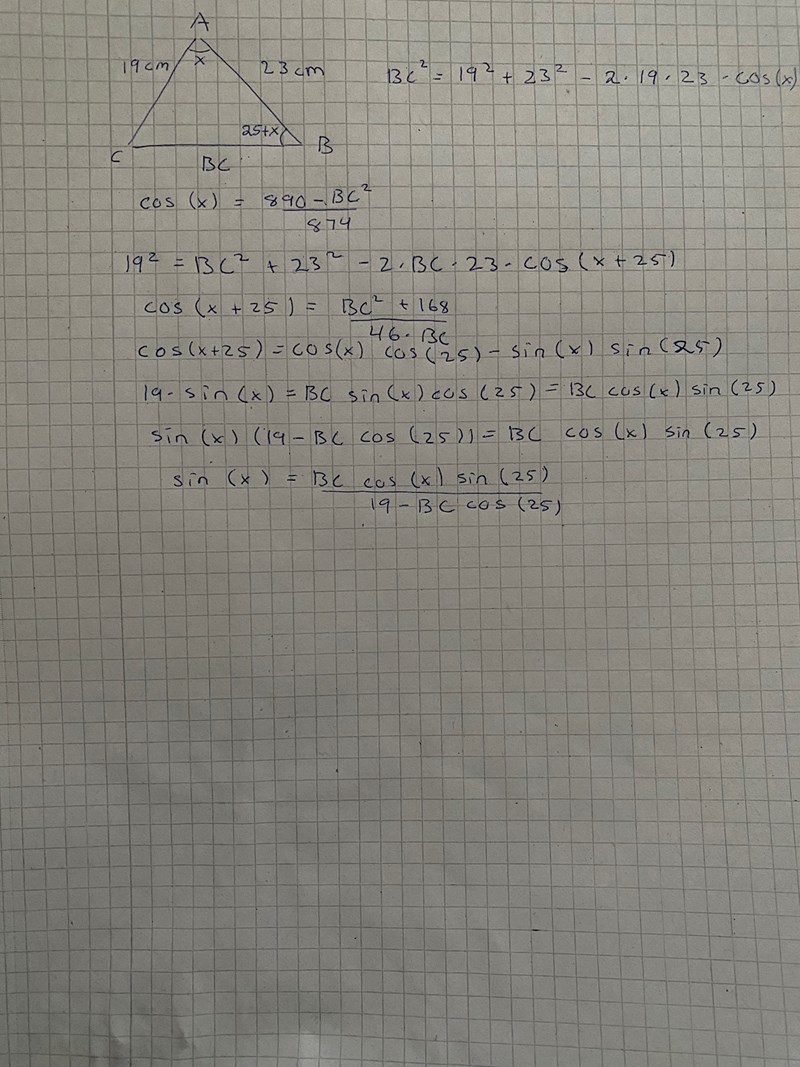 A
19cm
x
23cm
BC² = 19² + 23² - 2·19·23 - cos(x)
25+x
C
B
BC
cos (x) = 890 - BC² / 874
19² = BC² + 23² - 2·BC·23 - cos(x+25)
cos (x+25) = BC² + 168 / 46·BC
cos(x+25) = cos(x) cos(25) - sin(x) sin(25)
19· sin(x) = BC sin(x) cos(25) = BC cos(x) sin(25)
sin(x) (19 - BC cos(25)) = BC cos(x) sin(25)
sin (x) = BC cos(x) sin(25) / 19 - BC cos(25)